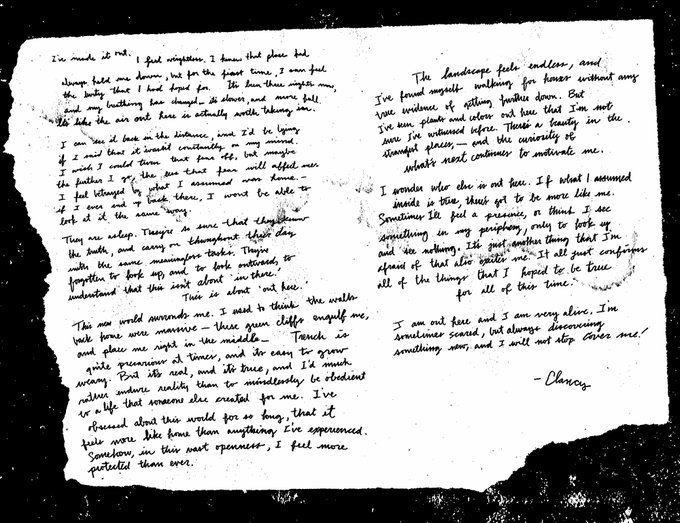 I've made it out. I feel weightless. I knew that place had
always held me down, but for the first time, I can feel
the unity that I had hoped for. It's been three nights now,
and my breathing has changed – it's slower, and more full.
It's like the air out here is actually worth taking in.
I can see it back in the distance, and I'd be lying
if I said that it wasn't constantly on my mind.
I wish I could turn that fear off, but maybe
the further I go, the less that fear will affect me.
I feel betrayed by what I assumed was home –
if I ever end up back there, I won't be able to
look at it the same way.
They are asleep. They're so sure that they know
the truth, and carry on throughout their day
with the same meaningless tasks. They've
forgotten to look up, and to look outward, to
understand that this isn't about 'in there.'
This is about 'out here.'
This new world surrounds me. I used to think the walls
back home were massive – these green cliffs engulf me,
and place me right in the middle – Trench is
quite precarious at times, and it's easy to grow
weary. But it's real, and it's true, and I'd much
rather endure reality than to mindlessly be obedient
to a life that someone else created for me. I've
obsessed about this world for so long, that it
feels more like home than anything I've experienced.
Somehow, in this vast openness, I feel more
protected than ever.
The landscape feels endless, and
I've found myself walking for hours without any
true evidence of getting further down. But
I've seen plants and colors out here that I'm not
sure I've witnessed before. There's a beauty in the
strangest places, – and the curiosity of
what's next continues to motivate me.
I wonder who else is out here. If what I assumed
inside is true, there's got to be more like me.
Sometimes I'll feel a presence, or think I see
something in my periphery, only to look up
and see nothing. It's just another thing that I'm
afraid of that also excites me. It all just confirms
all of the things that I hoped to be true
for all of this time.
I am out here and I am very alive. I'm
sometimes scared, but always discovering
something new, and I will not stop cover me!
– Clancy